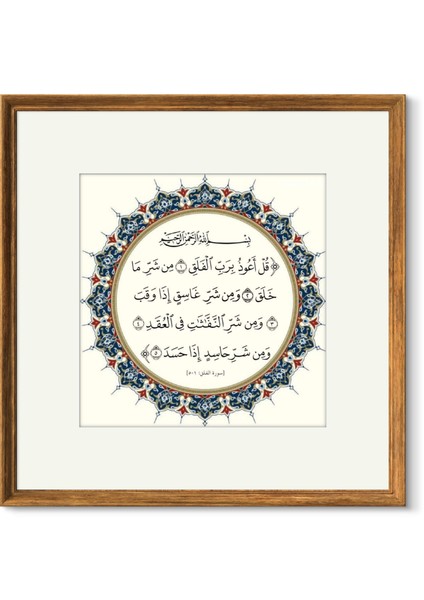 بِسْمِ اللَّهِ الرَّحْمَٰنِ الرَّحِيمِ
﴿قُلْ أَعُوذُ بِرَبِّ الْفَلَقِ ۝١ مِن شَرِّ مَا
خَلَقَ ۝٢ وَمِن شَرِّ غَاسِقٍ إِذَا وَقَبَ
۝٣ وَمِن شَرِّ النَّفَّاثَاتِ فِي الْعُقَدِ ۝٤
وَمِن شَرِّ حَاسِدٍ إِذَا حَسَدَ ۝٥﴾
[سورة الفلق: ١-٥]